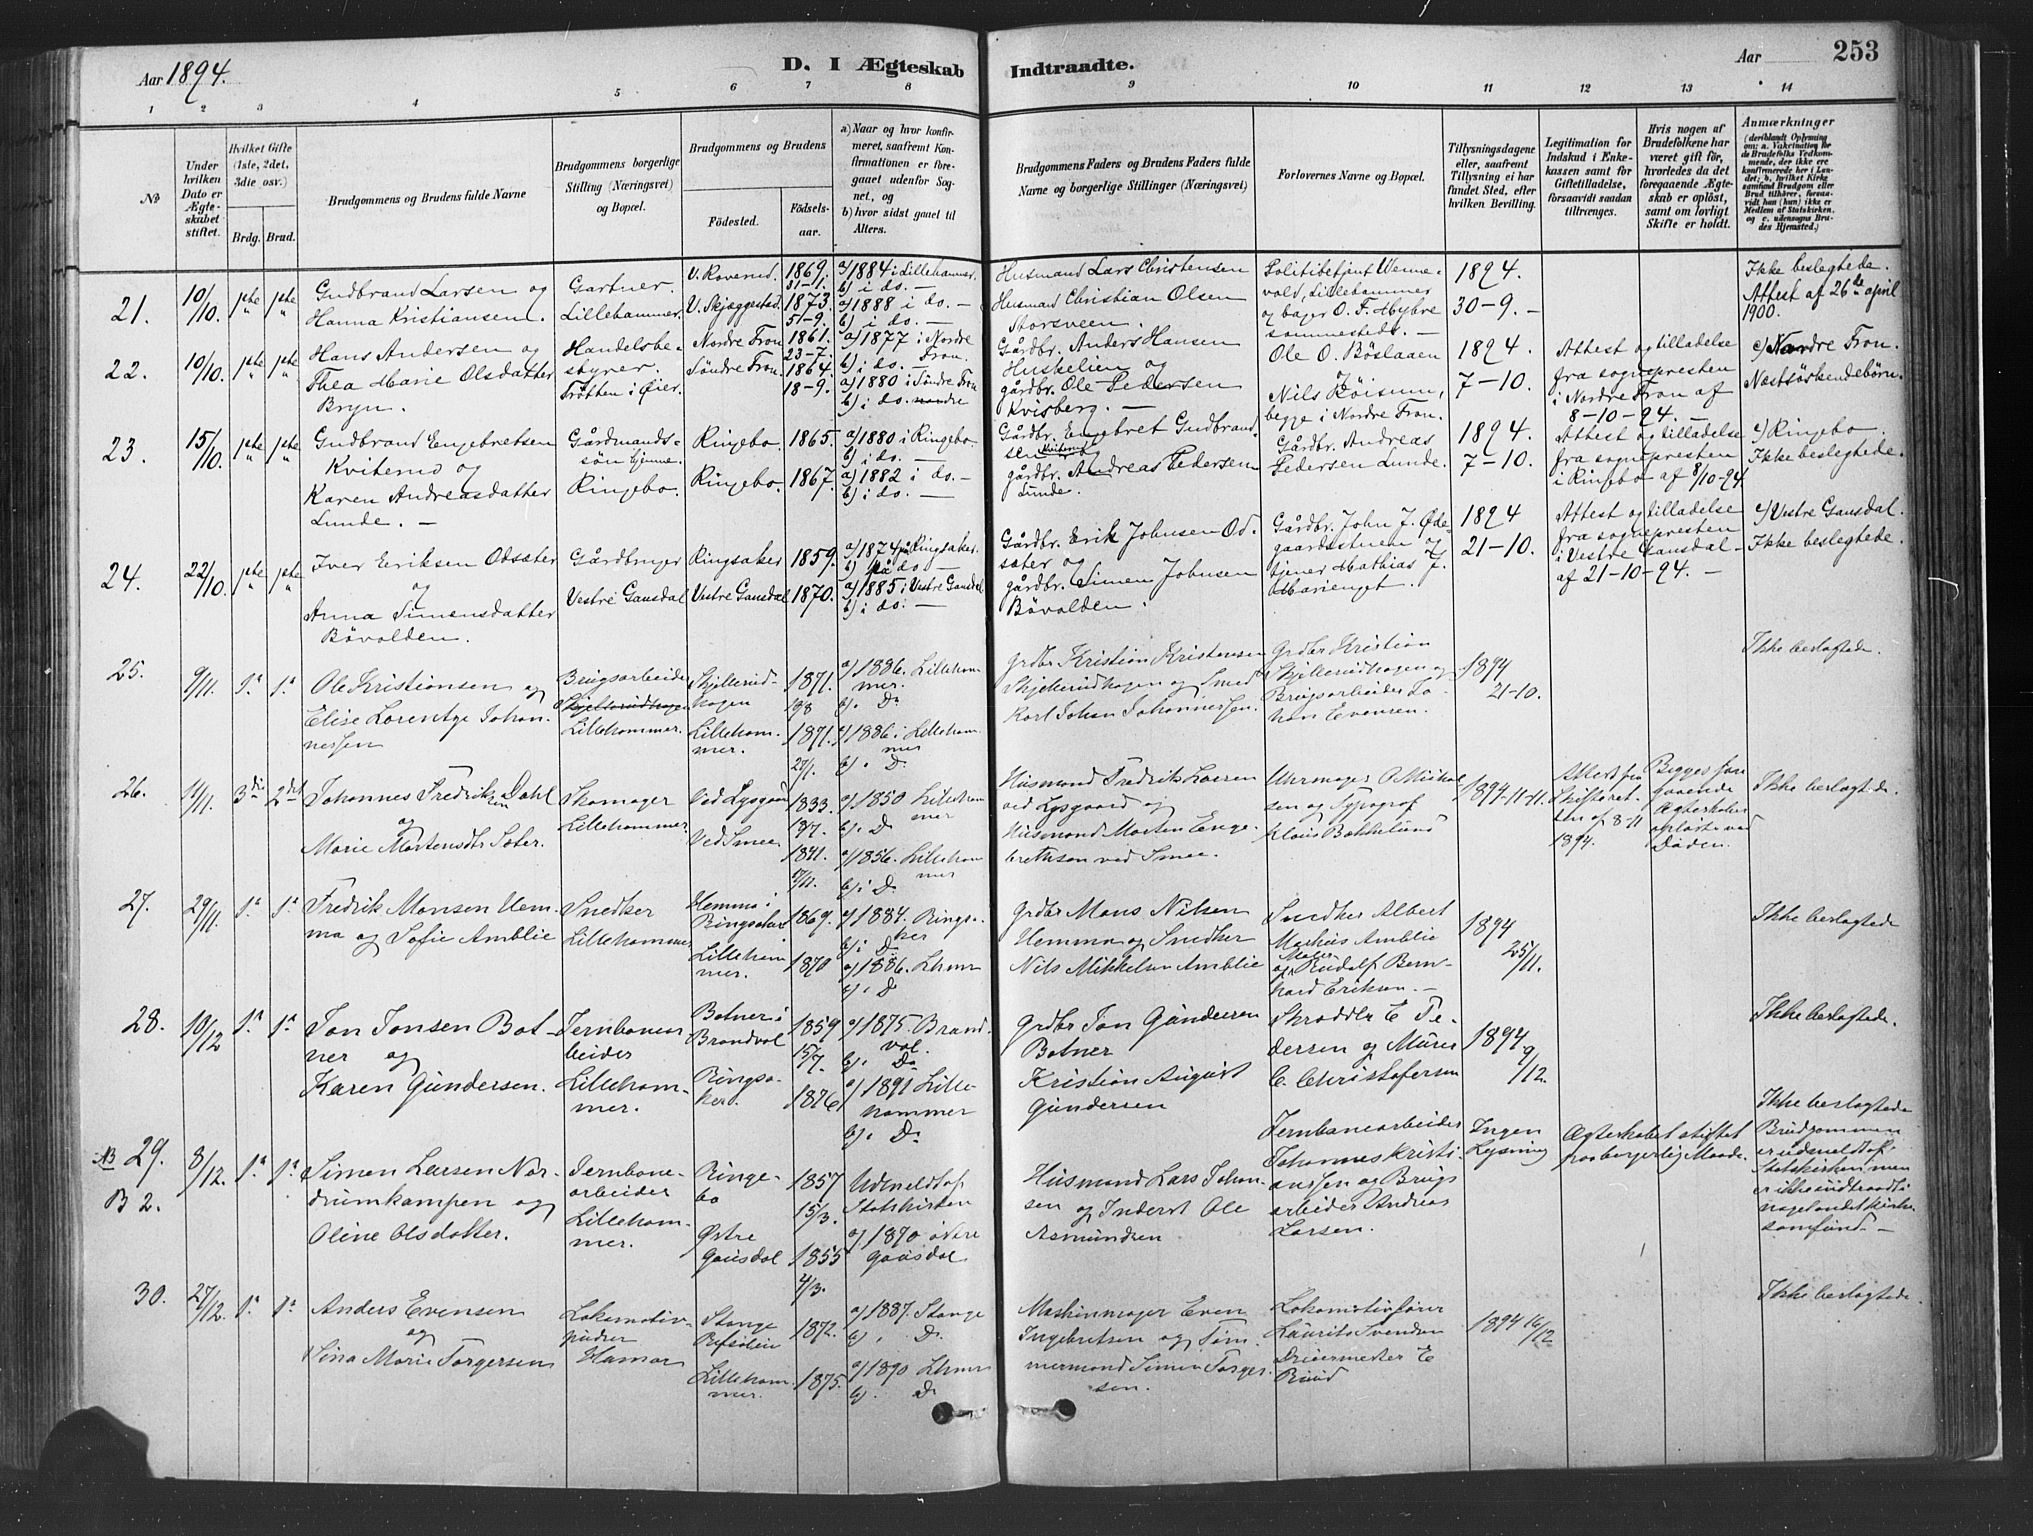 Aar 1894.
D. I Ægteskab Indtraadte.
Aar
253
1 2 3 4 5 6 7 8 9 10 11 12 13 14
No
Under hvilken Dato er Ægteskabet stiftet.
Hvilket Gifte (1ste, 2det, 3die osv.)
Brdg. Brud.
Brudgommens og Brudens fulde Navne
Brudgommens borgerlige Stilling (Næringsvei) og Bopæl.
Brudgommens og Brudens
Födested.
Födselsaar.
a) Naar og hvor konfirmeret, saafremt Konfirmationen er foregaaet udenfor Sognet, og
b) hvor sidst gaaet til Alters.
Brudgommens Faders og Brudens Faders fulde Navne og borgerlige Stillinger (Næringsvei)
Forlovernes Navne og Bopæl.
Tillysningsdagene eller, saafremt Tillysning ei har fundet Sted, efter hvilken Bevilling.
Legitimation for Indskud i Enkekassen samt for Giftetilladelse, forsaavidt saadan tiltrænges.
Hvis nogen af Brudefolkene har været gift för, hvorledes da det foregaaende Ægteskab er oplöst, samt om lovligt Skifte er holdt.
Anmærkninger
(deriblandt Oplysning om: a. Vakcination for de Brudefolks Vedkommende, der ikke ere konfirmerede her i Landet; b. hvilket Kirkesamfund Brudgom eller Brud tilhører, forsaavidt han (hun) ikke er Medlem af Statskirken, og c. udensogns Brudes Hjemsted.)
21.
10/10.
1ste
1ste
Gudbrand Larsen og
Hanna Kristiansen.
Gartner.
Lillehammer.
V. Roverud.
V. Skjæggestad.
1869.
31-1.
1873.
5-9.
a) 1884 i Lillehammer.
b) i do. —
a) 1888 i do. —
b) i do. —
Husmand Lars Christensen
Husmand Christian Olsen
Storsveen.
Politibetjent Wennevold, Lillehammer
og bager O. F. Myhre
sammesteds. —
1894.
30-9. —
Ikke beslegtede.
Attest af 26de april
1900.
22.
10/10.
1ste
1ste
Hans Andersen og
Thea Marie Olsdatter
Bryn.
Handelsbestyrer.
Tråtten i Öier.
Nordre Fron
Söndre Fron.
1861.
23-7.
1864.
18-9.
a) 1877 i Nordre
Fron.
b) i do. —
a) 1880 i Söndre Fron
b) i do. nordre
Gårdbr. Anders Hansen
Huskelien og
gårdbr. Ole Pedersen
Kvisberg. —
Ole O. Böslaaen
og
Nils Röisum,
begge i Nordre Fron.
1894.
7-10.
Attest og tilladelse
fra sognepresten
i Nordre Fron af
8-10-94. —
c) Nordre Fron.
Næstsöskendebörn.
23.
15/10.
1ste
1ste
Gudbrand Engebretsen
Kviterud og
Karen Andreasdatter
Lunde. —
Gårdmandssön
Ringebo.
Ringebo.
Ringebo.
1865.
1867.
a) 1880 i Ringebo.
b) i do. —
a) 1882 i do. —
b) i do. —
Gårdbr. Engebret Gudbrandsen Kviterud og
gårdbr. Andreas Pedersen
Lunde.
Gårdbr. Andreas
Pedersen Lunde.
1894.
7-10.
Attest og tilladelse
fra sognepresten
i Ringebo af 8/10-94
c) Ringebo.
Ikke beslegtede.
24.
22/10.
1ste
1ste
Iver Eriksen Odsæter
og
Anna Simensdatter
Bövolden.
Gårdbruger
Vestre Gausdal
Ringsaker
Vestre Gausdal
1859.
1870.
a) 1874 på Ringsaker.
b) på do. —
a) 1885 i Vestre Gausdal
b) i do. —
Gårdbr. Erik Johnsen Odsæter og
gårdbr. Simen Johnsen
Bövolden.
Gårdbr. John J. Ödegaardsstuen og
tjener Mathias J.
Marienget.
1894
21-10.
Attest og tilladelse
fra sognepresten
i Vestre Gausdal
af 21-10-94. —
c) Vestre Gausdal.
Ikke beslegtede.
25.
9/11.
1a
1a
Ole Kristiansen og
Elise Lorentze Johannessen
Brugsarbeider
Skjellerudhagen
Lillehammer.
Skjellerudhagen
Lillehammer.
1871.
19/8
1871.
27/1.
a) 1886. Lillehammer.
b) i Do
a) 1886 i Lillehammer
b) i Do
Grdbr Kristian Kristensen
Skjellerudhagen og Smed
Karl Johan Johannessen.
Grdbr Kristian
Skjellerudhagen og
Brugsarbeider Johan Evensen.
1894
21-10.
Ikke beslægtede.
26.
11/11.
3die
2det
Johannes Fredriksen Dahl
og
Marie Mortensdtr Sæter.
Skomager
Lillehammer
Ved Lysgaard
Ved Smee.
1833.
18/7.
1841.
7/11.
a) 1850 Lillehammer
b) i Do
a) 1856. Lillehammer
b) i Do
Husmand Fredrik Larsen
ved Lysgaard og
Husmand Morten Engebrethsen ved Smee.
Uhrmager O. Mikkelsen og Typograf
Klaus Bakkelund
1894-11-11.
Attest fra
Skifteretten af 8-11
1894.
Begges foregaaende
Ægteskaber
opløste ved
Døden.
Ikke beslægtede.
27.
29/11.
1a
1a
Fredrik Monsen Hemma og Sofie Amblie
Snedker
Lillehammer
Hemma i
Ringsaker
Lillehammer.
1869.
1870
a) 1884. Ringsaker
b) i Do
a) 1886. Lhmr
b) i Do
Grdbr Mons Nilsen
Hemma og Snedker
Nils Mikkelsen Amblie
Snedker Albert
Markus Amblie
og Maler Rudolf Bernhard Eriksen. —
1894
25/11.
Ikke beslægtede
28.
10/12
1a
1a
Jon Jonsen Botner og
Karen Gundersen.
Jernbanearbeider
Lillehammer.
Botner i
Brandval
Ringsaker.
1859
15/7.
1876
a) 1875. Brandval.
b) i Do
a) 1891 Lillehammer
b) i Do
Grdbr Jon Gundersen
Botner
Kristian August
Gundersen
Skrædder E. Pedersen og Murer
C. Christofersen
1894
9/12.
Ikke beslægtede.
NB 29.
B 2.
8/12.
1a
1a
Simen Larsen Nordrumkampen og
Oline Olsdatter.
Jernbanearbeider
Lillehammer.
Ringebo
Østre
Gausdal
1857
15/3.
1855
4/3.
Udmeldt af
Statskirken
a) 1870 i Østre
Gausdal
Husmand Lars Johansen og Inderst Ole
Asmundsen
Jernbanearbeider
Johannes Kristiansen og Brugsarbeider Andreas
Larsen.
Ingen
Lysning
Ægteskabet stiftet
paa borgerlig Maade.
Ikke beslægtede
Brudgommen
er udmeldt af
Statskirken, men
er ikke indtraadt i
noget andet Kirkesamfund. —
30.
27/12.
1a
1a
Anders Evensen
og
Lina Marie Torgersen
Lokomotivpudser
Hamar
Stange
Lillehammer.
1872.
1875.
a) 1887. Stange
b) i Do
a) 1890 Lhmr
b) i Do
Maskinmager Even
Ingebretsen og Tømmermand Simen Torgersen.
Lokomotivfører
Laurits Svendsen
Dreiermester E
Ruud
1894 16/12
Ikke beslægtede.